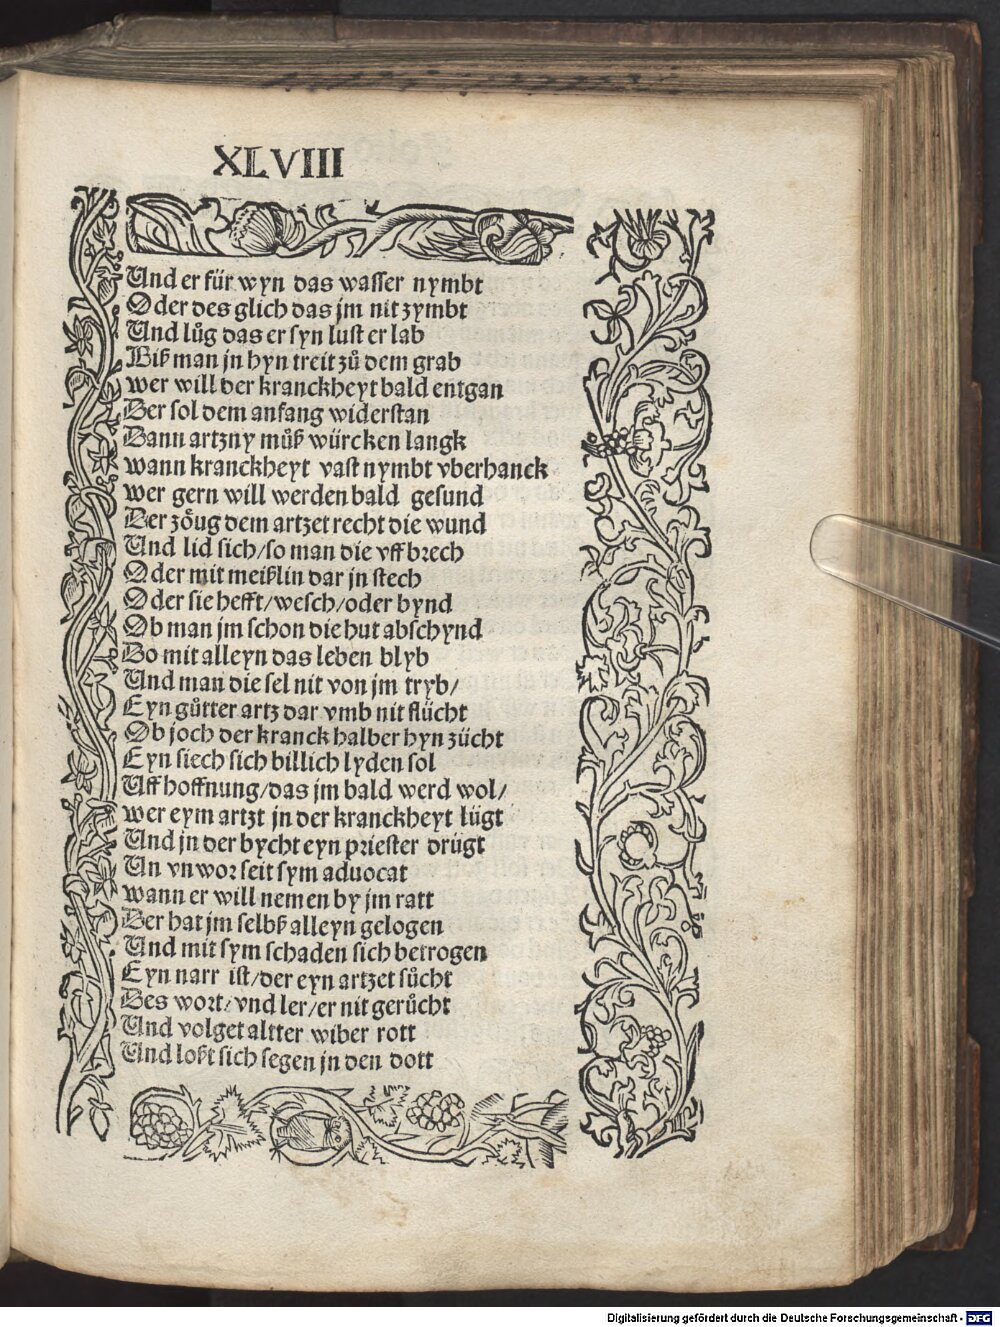 XLVIII
Und er für wyn das wasser nymbt
Oder des glich das jm nit zymbt
Und lůg das er syn lust er lab
Biß man jn hyn treit zů dem grab
wer will der kranckheyt bald entgan
Der sol dem anfang widerstan
Dann artzny můß würcken langk
wann kranckheyt vast nymbt vberhanck
wer gern will werden bald gesund
Der zöug dem artzet recht die wund
Und lid sich/so man die vff brech
Oder mit meißlin dar jn stech
Oder sie hefft/wesch/oder bynd
Ob man jm schon die hut abschynd
Do mit alleyn das leben blyb
Und man die sel nit von jm tryb/
Eyn gůtter artz dar vmb nit flücht
Ob joch der kranck halber hyn zücht
Eyn siech sich billich lyden sol
Uff hoffnung/das jm bald werd wol/
wer eym artzt jn der kranckheyt lügt
Und jn der bycht eyn priester drügt
Un vnwor seit sym aduocat
wann er will nemen by jm ratt
Der hat jm selbß alleyn gelogen
Und mit sym schaden sich betrogen
Eyn narr ist/der eyn artzet sůcht
Des wort/vnd ler/er nit gerůcht
Und volget altter wiber rott
Und loßt sich segen jn den dott
Digitalisierung gefördert durch die Deutsche Forschungsgemeinschaft - DFG